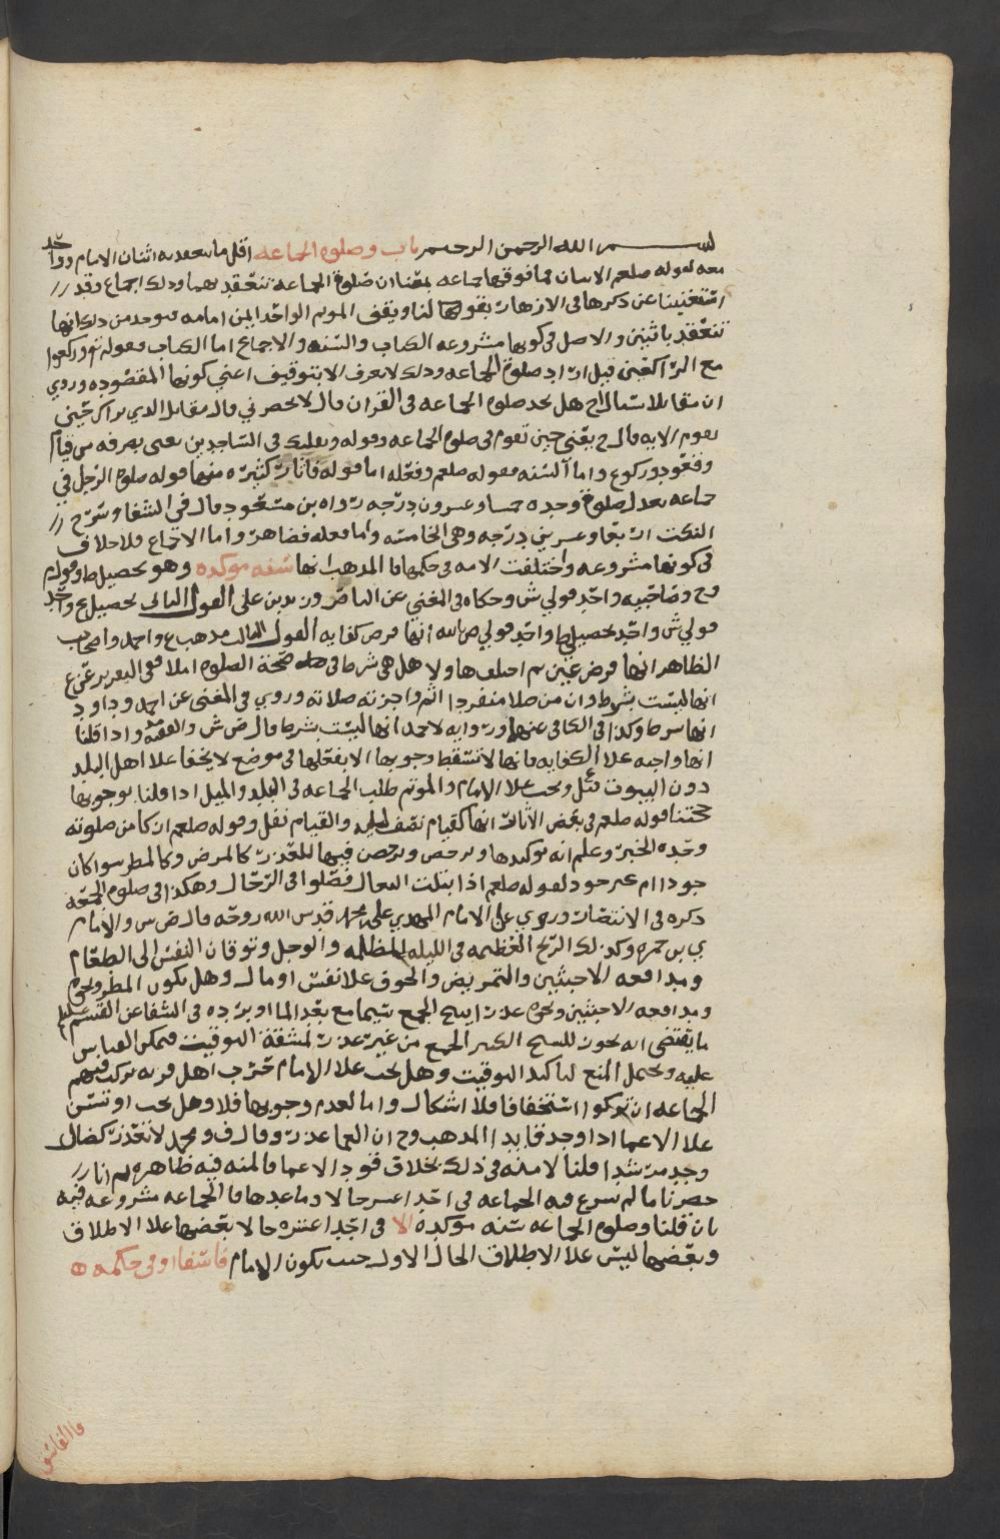 بسم الله الرحمن الرحيم باب وصلوه الجماعه اقل ما تنعقد به اثنان الامام وواحد
معه لقوله صلعم الاثنان فما فوقهما جماعه بمعنا ان صلوة الجماعة تنعقد بهما وذلك اجماع وقد
استغنينا عن ذكرها في الازهار بقولنا ويقف الموتم الواحد ايمن امامه فيوخذ من ذلك انها
تنعقد باثنين والاصل في كونها مشروعه الكتاب والسنه والاجماع اما الكتاب فقوله تع واركعوا
مع الراكعين قيل اراد صلوة الجماعه وذلك لا يعرف الا بتوقيف اعني كونها المقصوده وروي
ان مقاتلا سال هل تجد صلوه الجماعه في القران قال لا يحضرني قال مقاتل الذي يراك حين
تقوم الايه قال ح يعني حين تقوم في صلوة الجماعه وقوله وتقلبك في الساجدين يعني تصرفه من قيام
وقعود وركوع واما السنه فقوله صلعم وفعله اما قوله فاثار كثيره منها قوله صلوة الرجل في
جماعه تعدل صلوة وحده خمسا وعشرون درجه رواه بن مسعود قال في الشفا وشرح
النكت اربعا وعشرين درجه وهي الخامسه واما فعله فظاهر واما الاجماع فلا خلاف
في كونها مشروعه واختلفت الامه في حكمها فالمذهب انها سنه موكده وهو تحصيل ط وقول م
وح وصاحبيه واحد قولي ش وحكاه في المغني عن الناصر وزيد بن على القول الثاني تحصيل ع واحد
قولي ش واحد تحصيلي ط واحد قولي ص بالله انها فرض كفايه القول الثالث مذهب ع واحمد واصحاب
الظاهر انها فرض عين ثم اختلف هاولا هل هي شرط في صحة الصلوه ام لا ففي التقرير عن ع
انها ليست بشرط وان من صلا منفردا اثم واجزته صلاته وروي في المغني عن احمد وداود
انها شرط وكذا في الكافي عنهما وروايه لاحمد انها ليست بشرط قال ض ش والفقه واذا قلنا
انها واجبه علا الكفايه فانها لا تسقط وجوبها الا بفعلها في موضع لا يخفا علا اهل البلد
دون البيوت ويجب علا الامام والموتم طلب الجماعه في البلد والميل اذا قلنا بوجوبها
حجتنا قوله صلعم في بعض الاثار انها كقيام نصف ليله والقيام نفل وقوله صلعم ازكا من صلوته
وحده الخبر وعلم انه توكيدها وترخص فيها للعذر كالمرض وكالمطر سوا كان
جودا ام غير جود لقوله صلعم اذا ابتلت النعال فصلوا في الرحال وهكذا في صلوه الجمعه
ذكره في الانتصار وروي على الامام المهدي علي بن محمد قدس الله روحه قال ض س والامام
ي بن حمزه وكذلك الريح العظيمه في الليله المظلمه والوجل وتوقان النفس الى الطعام
ومدافعه الاخبثين والتمريض والخوف علا نفس او مال وهل يكون المطر ونحوه
ومدافعه الاخبثين ونحوه عذرا يبيح الجمع سيما مع بعد الما او برده في الشفا عن القسم عليلم
ما يقتضي انه يجوز للشيخ الكبير الجمع من غير عذر لمشقة التوقيت فيمكن القياس
عليه ويحتمل المنع لتاكيد التوقيت وهل يجب علا الامام حرب اهل قريه تركت فيهم
الجماعه ان تركوا استخفافا فلا اشكال واما لعدم وجوبها فلا وهل يجب او تسن
علا الاعما اذا وجد قايدا المذهب وح ان العما عذر وقال ف ومحمد لا تعذر كضال
وجد مرشدا قلنا لا منه في ذلك بخلاف قود الاعما فالمنه فيه ظاهره ثم انا
حصرنا ما لم تشرع فيه الجماعه في احد عشر حالا وما عداها فالجماعه مشروعه فيه
بان قلنا وصلوه الجماعه سنه موكده الا في احد عشر حالا بعضها علا الاطلاق
وبعضها ليس علا الاطلاق الحال الاول حيث يكون الامام فاسقا او في حكمه
فالفاسق